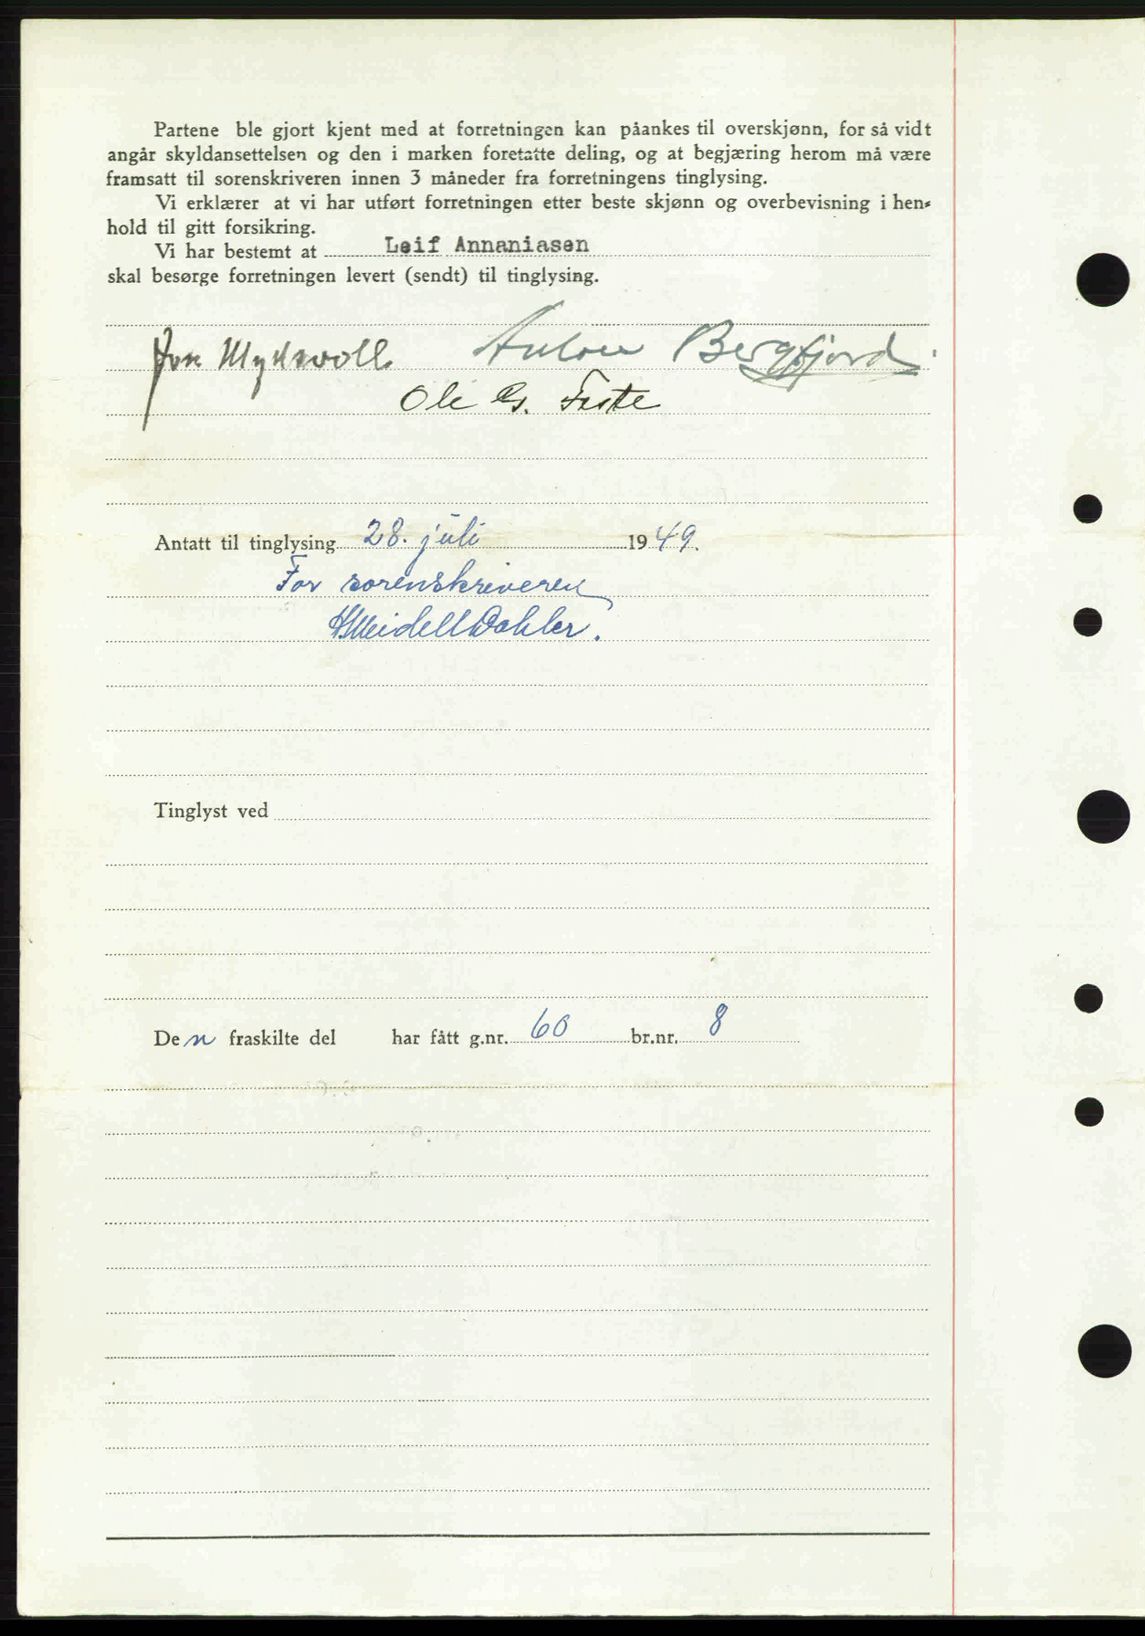 Partene ble gjort kjent med at forretningen kan påankes til overskjønn, for så vidt
angår skyldansettelsen og den i marken foretatte deling, og at begjæring herom må være
framsatt til sorenskriveren innen 3 måneder fra forretningens tinglysing.
Vi erklærer at vi har utført forretningen etter beste skjønn og overbevisning i hen-
hold til gitt forsikring.
Vi har bestemt at Leif Annaniasen
skal besørge forretningen levert (sendt) til tinglysing.
Jon Myksvoll Anton Bergfjord
Ole G. Faste
Antatt til tinglysing 28. juli 1949.
For sorenskriveren
Meidell Dahler.
Tinglyst ved
Den fraskilte del har fått g.nr. 60 br.nr. 8